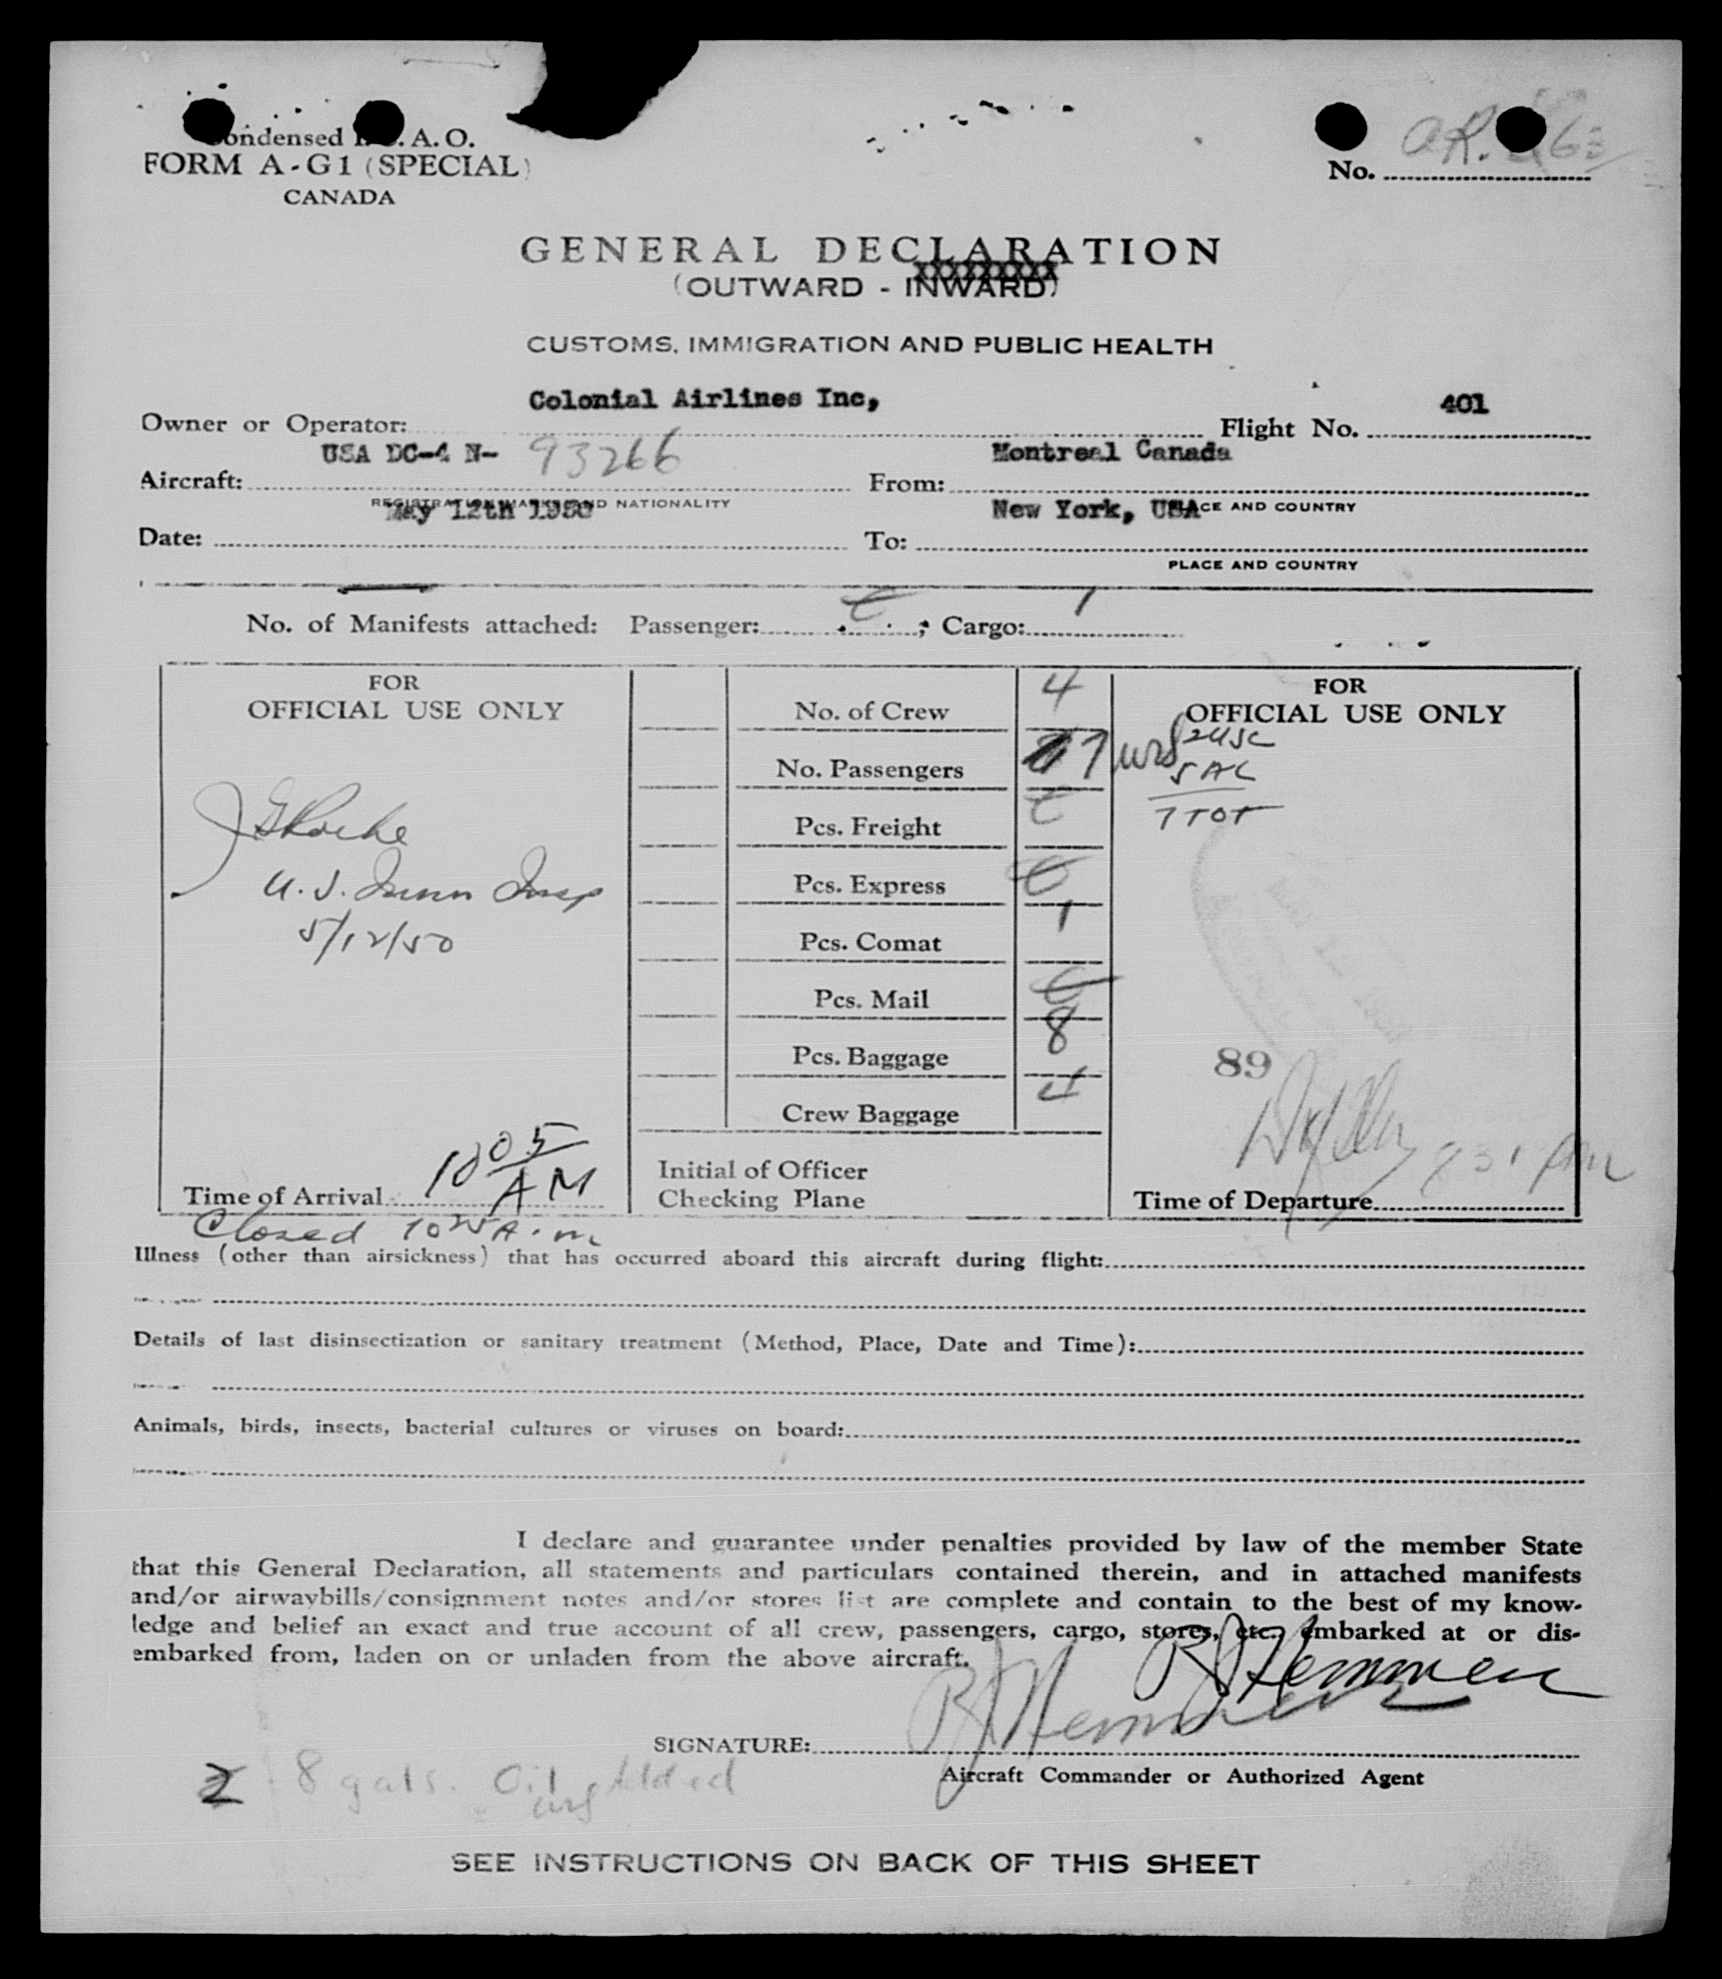 Condensed I. C. A. O.
FORM A-G1 (SPECIAL)
CANADA
No.
GENERAL DECLARATION
(OUTWARD - INWARD)
CUSTOMS, IMMIGRATION AND PUBLIC HEALTH
Owner or Operator: Colonial Airlines Inc, Flight No. 401
Aircraft: USA DC-4 N- 93266 From: Montreal Canada
REGISTRATION MARKS AND NATIONALITY PLACE AND COUNTRY
Date: May 12th 1950 To: New York, USA
PLACE AND COUNTRY
No. of Manifests attached: Passenger: ; Cargo: 1
FOR
OFFICIAL USE ONLY
U. S. Imm Insp
5/12/50
Time of Arrival 1005 AM
Closed 10 25 A.m
No. of Crew 4
No. Passengers 7
Pcs. Freight
Pcs. Express
Pcs. Comat 1
Pcs. Mail
Pcs. Baggage 8
Crew Baggage 4
Initial of Officer
Checking Plane
FOR
OFFICIAL USE ONLY
2 USC
5 AL
7 TOT
89
Time of Departure
Illness (other than airsickness) that has occurred aboard this aircraft during flight:
Details of last disinsectization or sanitary treatment (Method, Place, Date and Time):
Animals, birds, insects, bacterial cultures or viruses on board:
I declare and guarantee under penalties provided by law of the member State
that this General Declaration, all statements and particulars contained therein, and in attached manifests
and/or airwaybills/consignment notes and/or stores list are complete and contain to the best of my know-
ledge and belief an exact and true account of all crew, passengers, cargo, stores, etc. embarked at or dis-
embarked from, laden on or unladen from the above aircraft.
SIGNATURE:
Aircraft Commander or Authorized Agent
2 8 gals. Oil Added
SEE INSTRUCTIONS ON BACK OF THIS SHEET